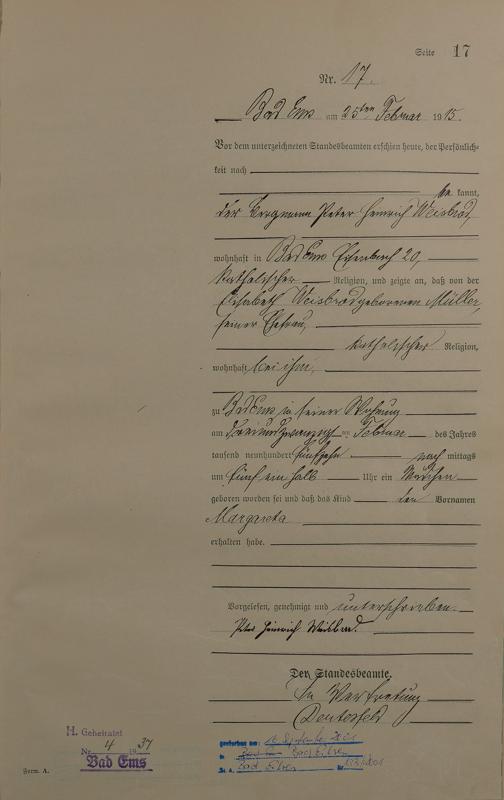 Seite 17
Nr. 17.
Bad Ems am 25ten Februar 1915.
Vor dem unterzeichneten Standesbeamten erschien heute, der Persönlich-
keit nach
be kannt,
der Bergmann Peter Heinrich Weisbrod,
wohnhaft in Bad Ems Eisenbach 20,
katholischer Religion, und zeigte an, daß von der
Elisabeth Weisbrod geborenen Müller,
seiner Ehefrau,
katholischer Religion,
wohnhaft bei ihm,
zu Bad Ems in seiner Wohnung
am dreiundzwanzigsten Februar des Jahres
tausend neunhundert fünfzehn nach mittags
um fünf ein halb Uhr ein Mädchen
geboren worden sei und daß das Kind den Vornamen
Margareta
erhalten habe.
Vorgelesen, genehmigt und unterschrieben.
Peter Heinrich Weisbrod.
Der Standesbeamte.
In Vertretung
H. Geheiratet
Nr. 4 1937
Bad Ems
gestorben am: September 2001
in Bad
St. A. Bad Nr.
Form. A.